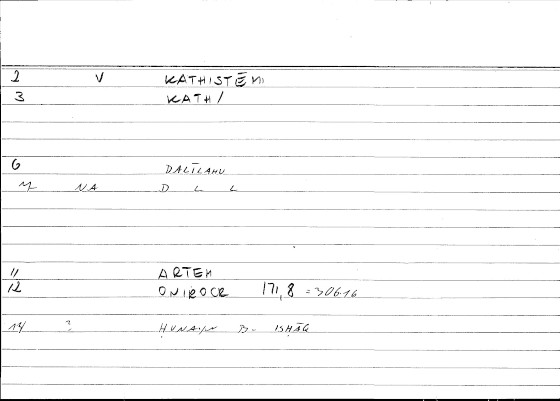 2 V KATHISTĒMI
3 KATH/
6 DALĪLAHU
M NA D L L
11 ARTEM
12 ONIROCR 171,8 = 306.16
14 ? ḤUNAYN B- ISḤĀQ